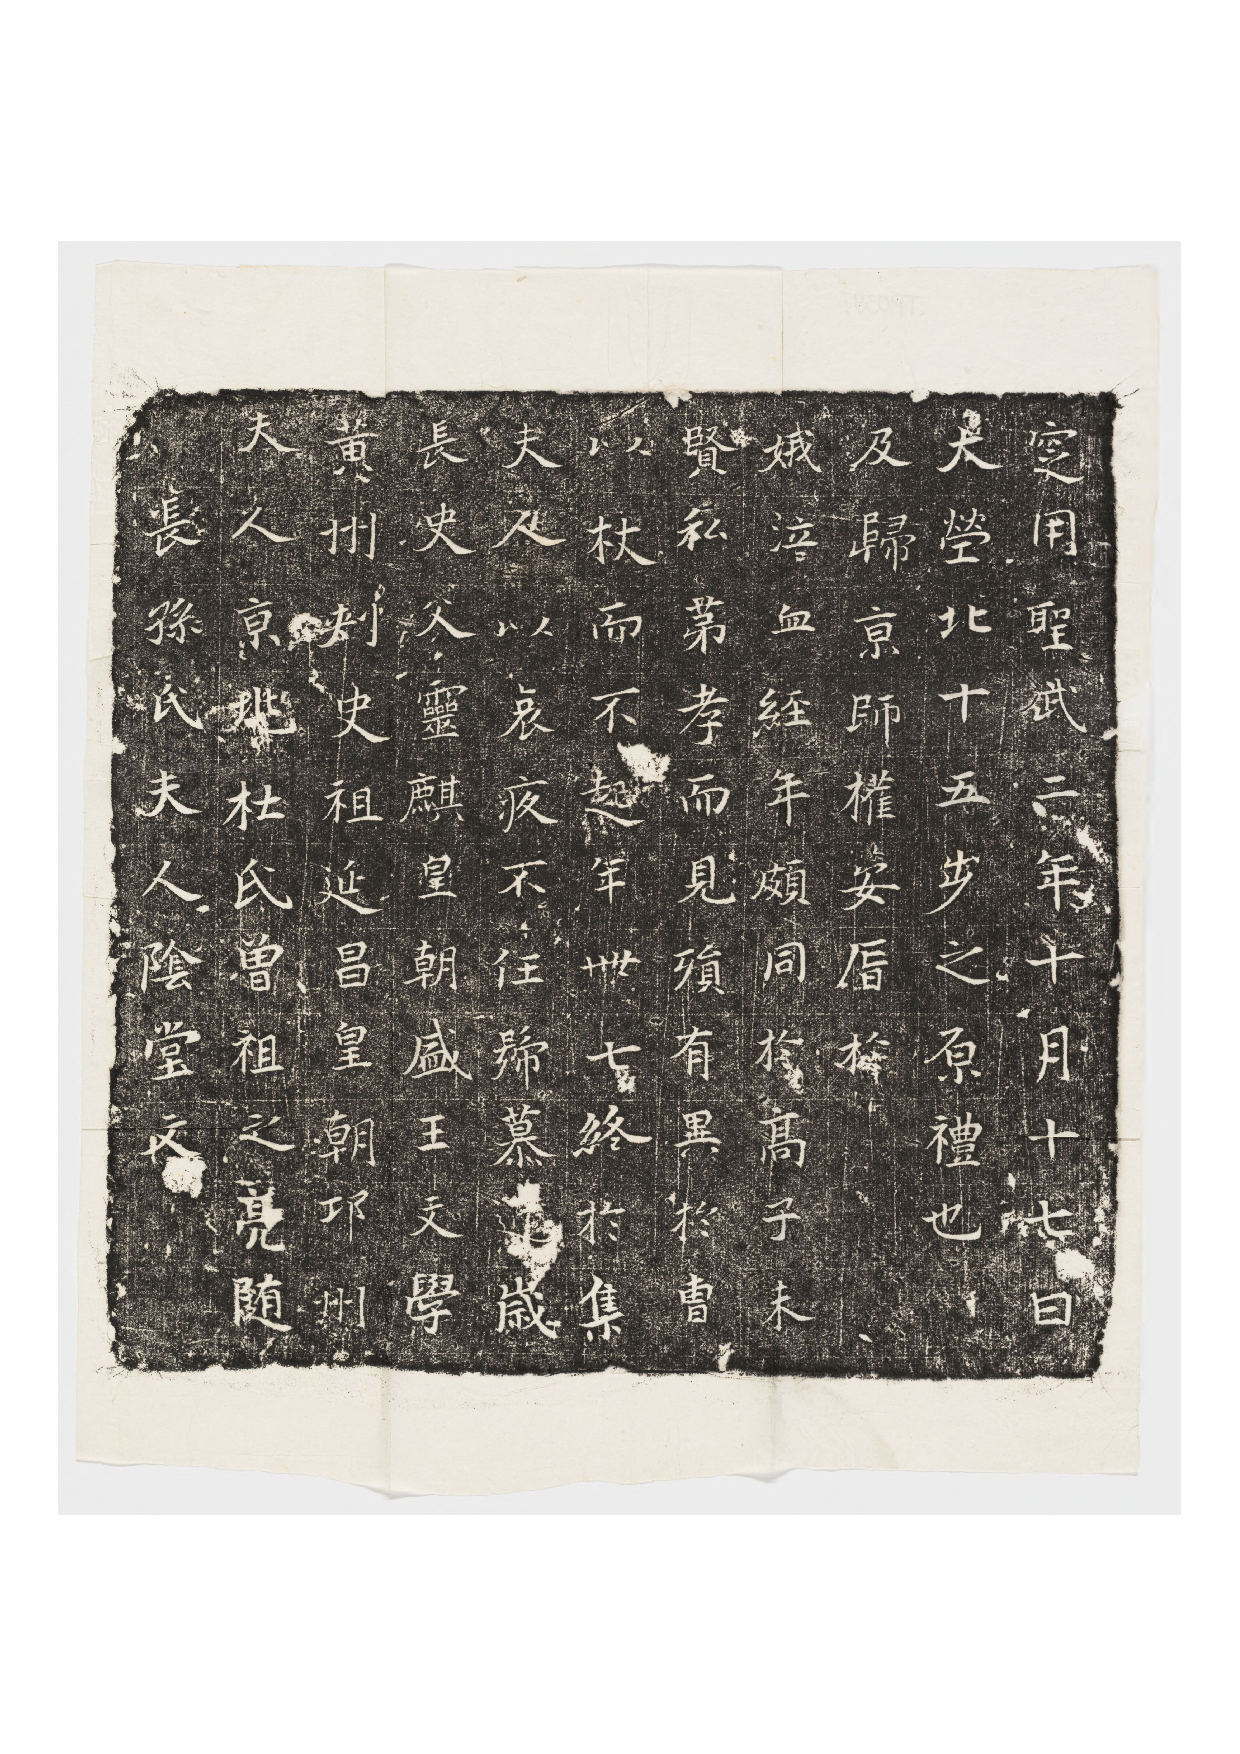 長孫氏夫人陰堂文
夫人京兆杜氏曾祖之亮随
黄州刾史祖延昌皇朝邛州
長史父靈麒皇朝盛王文學
夫人以哀疚不任號慕逾歲
以杖而不起年卌七終於集
賢私第孝而見殞有異於曹
娥泣血經年頗同於高子未
及歸京師權安厝於
大塋北十五步之原禮也
定用聖武二年十月十七日